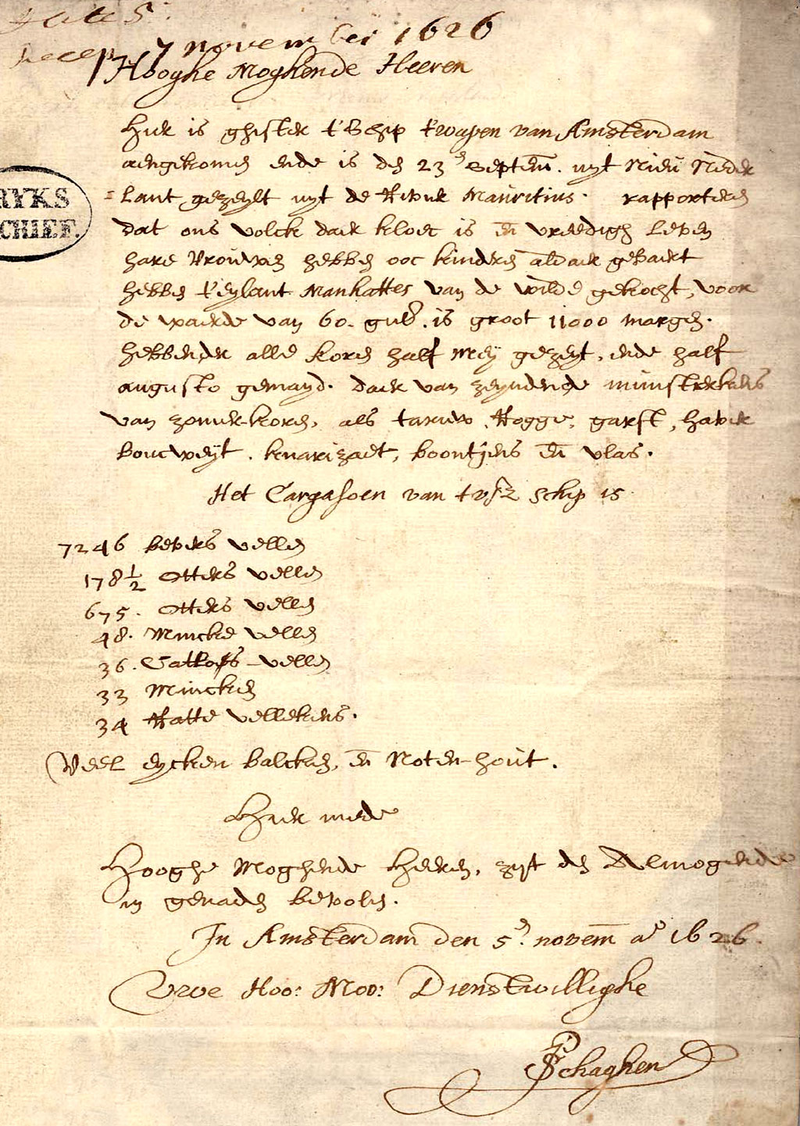 7 november 1626
Hooghe Moghende Heeren
Hier is ghister t'Schip t'wapen van Amsterdam
aengekomen ende is den 23en Septem. uyt Nieu Neder
=Lant gezeylt uyt de Rivier Mauritius. rapporteren
RYKS
CHIEF.
dat ons volck daer kloec is en vreedigh leven
hare Vrouwen hebben ooc kinderen aldaer gebaert
hebben t'eylant Manhattes van de wilde gekocht, voor
de waerde van 60. gul. is groot 11000 margen.
hebbende alle koren half Mey gezeyt, ende half
augusto gemayd. daer van zeyndende munsterkens
van zomer-koren, als tarruw, Rogge, garst, haver
boucweyt, knarizaet, boontjens en vlas.
Het Cargasoen van tvsz schip is
7246 bevers vellen
178½ Otters vellen
675. Otters vellen
48. Mincke vellen
36. Catloes-vellen
33 Mincken
34 Ratte vellekens.
Veel eycken balcken, en Noten-hout.
Hier mede
Hooghe Moghende Heeren, zyt den Almogende
in genaden bevolen.
In Amsterdam den 5en novem ao 1626.
Uwe Hoo: Moo: Dienstwillighe
P Schaghen